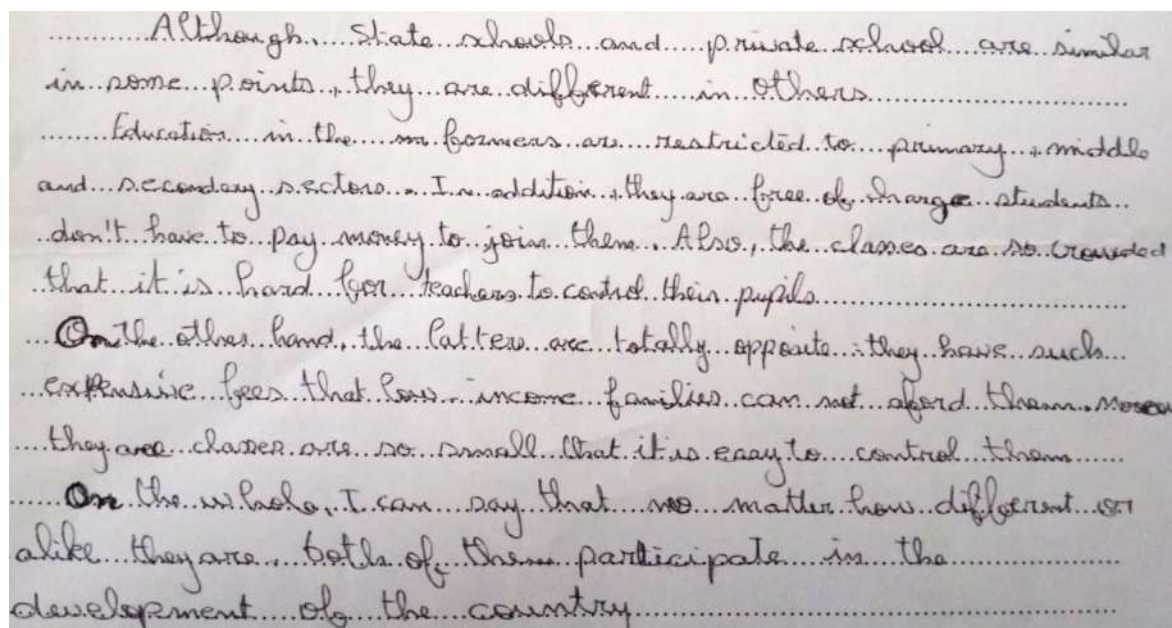 Although, State schools and private school are similar
in some points, they are different in others
Education in the formers are restricted to primary, middle
and secondary sectors. In addition, they are free of charge students
don't have to pay money to join them. Also, the classes are so crowded
that it is hard for teachers to control their pupils
On the other hand, the latters are totally opposite: they have such
expensive fees that low-income families can not aford them.
they are classes are so small that it is easy to control them
On the whole, I can say that no matter how different or
alike they are, both of them participate in the
development of the country